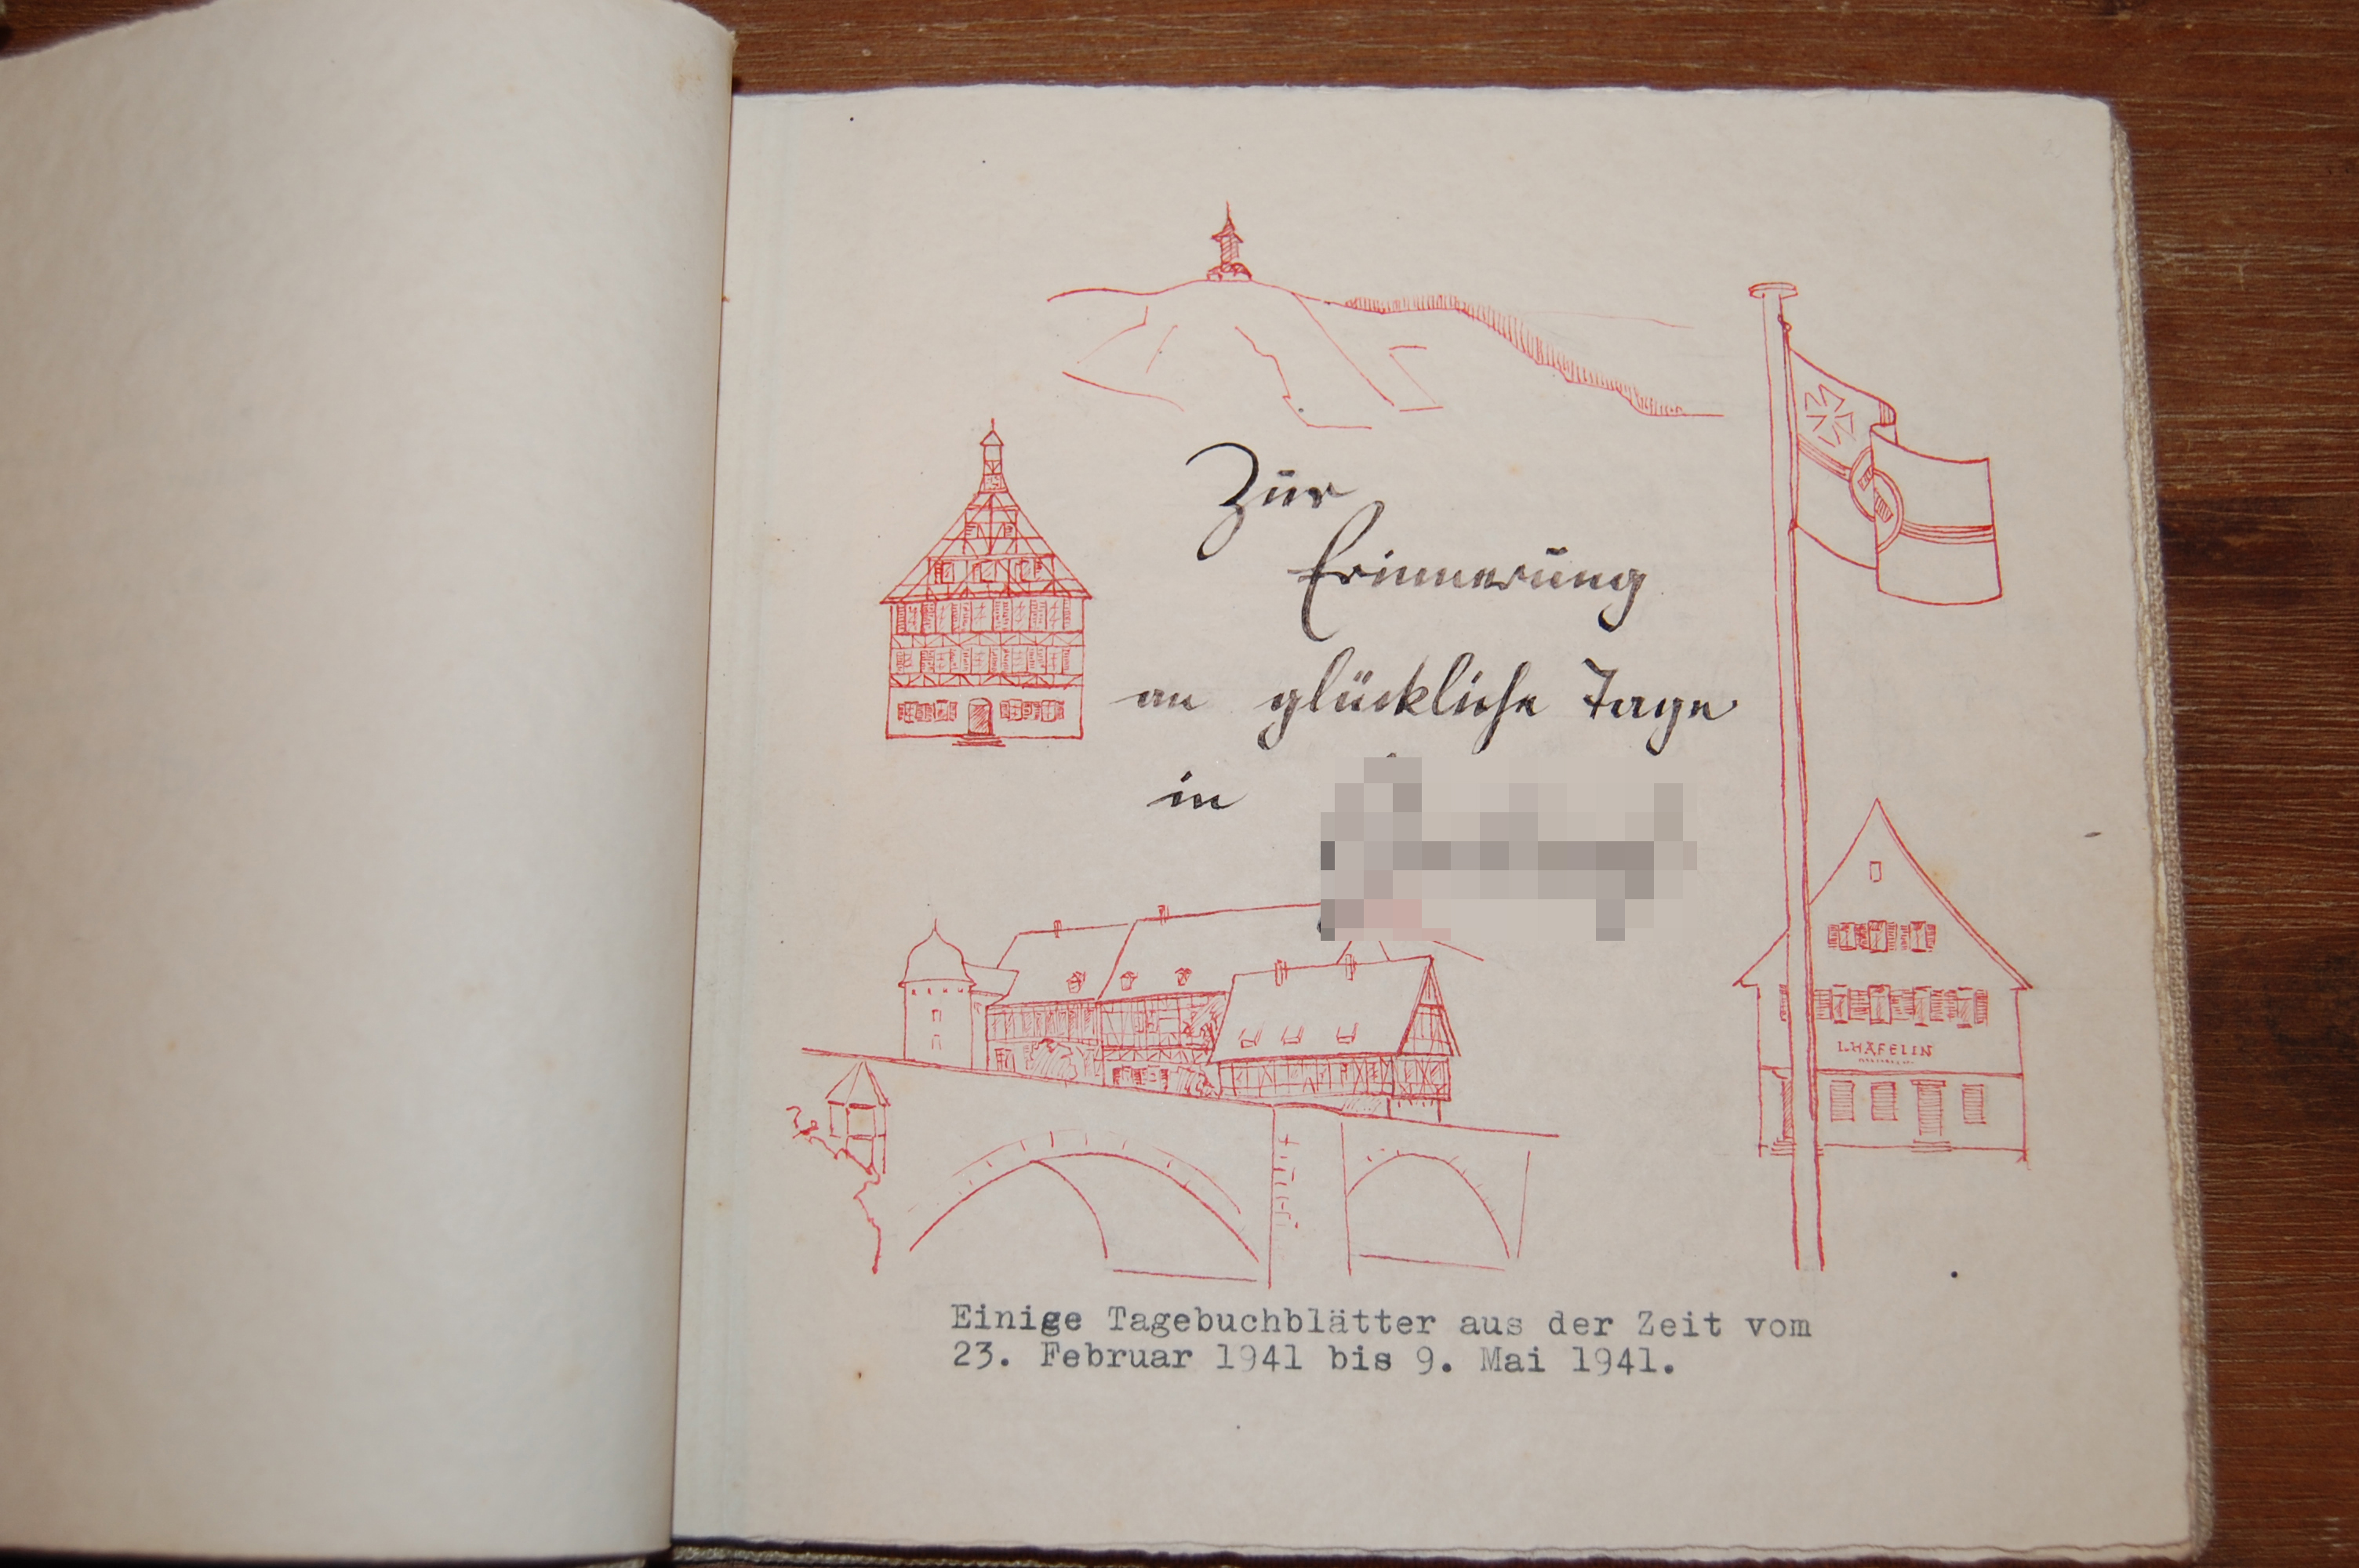 Zur
Erinnerung
an glückliche Tage
in
L. HÄFELIN
Einige Tagebuchblätter aus der Zeit vom
23. Februar 1941 bis 9. Mai 1941.